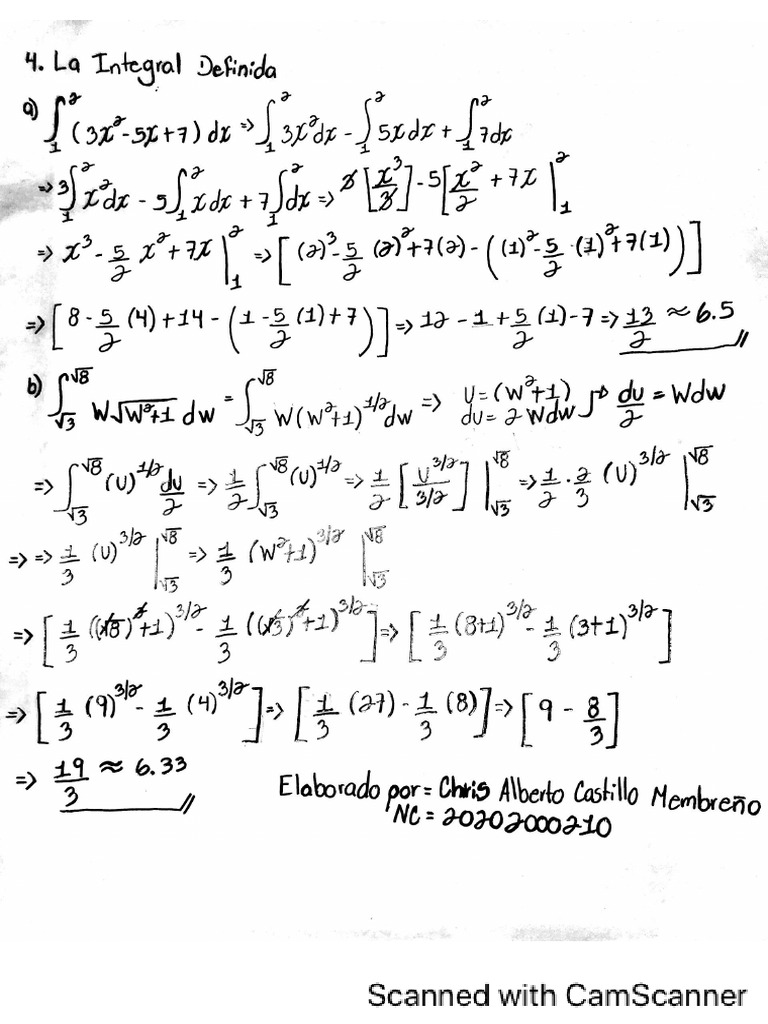 4. La Integral Definida
a) ∫₁² (3x²-5x+7) dx => ∫₁² 3x²dx - ∫₁² 5xdx + ∫₁² 7dx
=> 3∫₁² x²dx - 5∫₁² xdx + 7∫₁² dx => 3[x³/3] - 5[x²/2 + 7x |₁²
=> x³ - 5/2 x² + 7x |₁² => [(2)³ - 5/2 (2)² + 7(2) - ((1)² - 5/2 · (1)² + 7(1))]
=> [8 - 5/2 (4) + 14 - (1 - 5/2 (1) + 7)] => 12 - 1 + 5/2 (1) - 7 => 13/2 ≈ 6.5
b) ∫_√3^√8 W√(W²+1) dw = ∫_√3^√8 W(W²+1)^1/2 dw => U = (W²+1) du = 2 Wdw => du/2 = Wdw
=> ∫_√3^√8 (U)^1/2 du/2 => 1/2 ∫_√3^√8 (U)^1/2 => 1/2 [U^3/2 / 3/2] |_√3^√8 => 1/2 · 2/3 (U)^3/2 |_√3^√8
=> => 1/3 (U)^3/2 |_√3^√8 => 1/3 (W²+1)^3/2 |_√3^√8
=> [1/3 ((√8)²+1)^3/2 - 1/3 ((√3)²+1)^3/2] => [1/3 (8+1)^3/2 - 1/3 (3+1)^3/2]
=> [1/3 (9)^3/2 - 1/3 (4)^3/2] => [1/3 (27) - 1/3 (8)] => [9 - 8/3]
=> 19/3 ≈ 6.33
Elaborado por = Chris Alberto Castillo Membreño
NC = 20202000210
Scanned with CamScanner